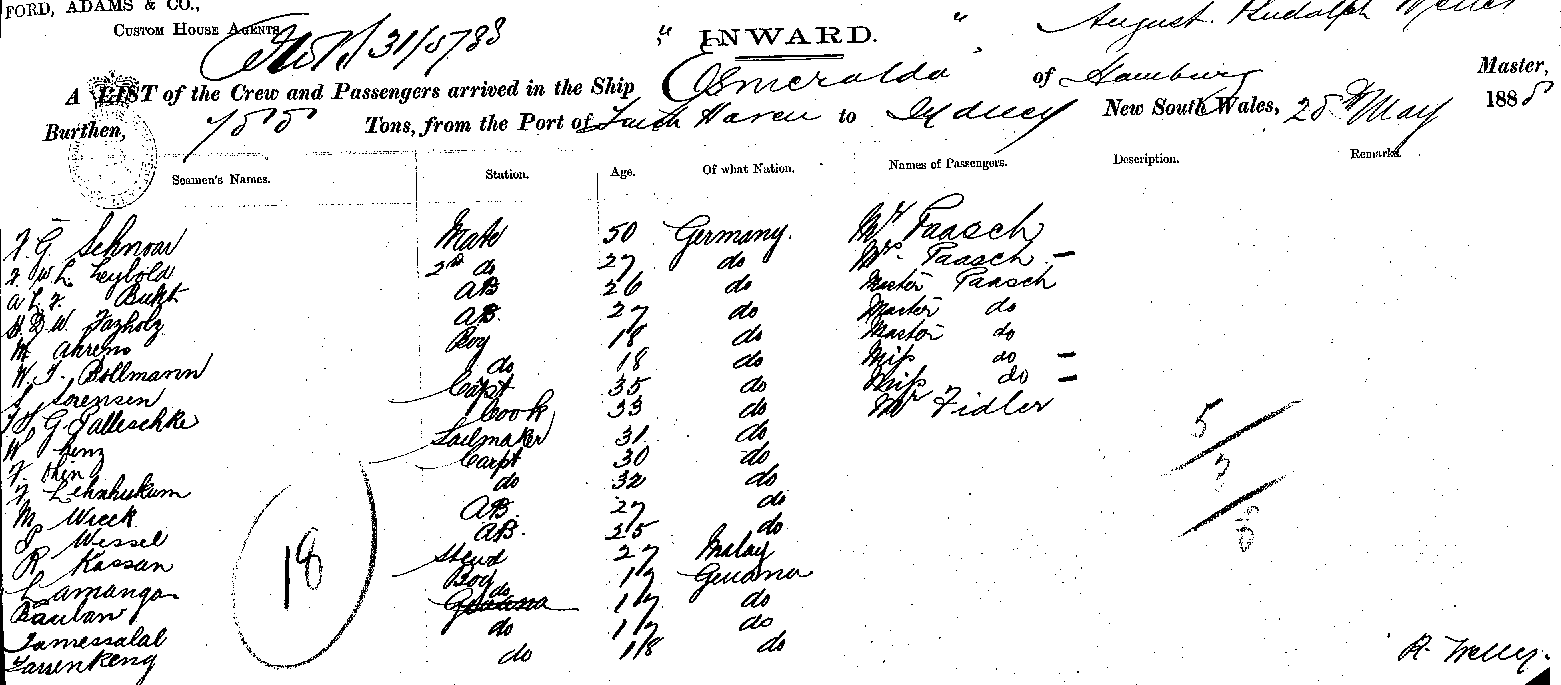 FORD, ADAMS & CO.,
CUSTOM HOUSE AGENTS
31/5/88
" INWARD. " August Rudolph
A LIST of the Crew and Passengers arrived in the Ship Esmeralda of Hamburg Master,
Burthen, Tons, from the Port of Haven to Sydney New South Wales, 28th May 1888
Seamen's Names. Station. Age. Of what Nation. Names of Passengers. Description. Remarks.
F. G Schnoar Mate 50 Germany. Mr Paasch
F. W L Leybold 2nd do 27 do Mrs. Paasch –
A L F. AB 26 do Master Paasch
W Fazholz AB. 27 do Master do
M Ahrens Boy 18 do Master do
W. F. Bollmann do 18 do Miss do –
S. Sorensen Carpt 35 do Miss do –
G. Palleschke Cook 33 do Mr Fidler
W Sailmaker 31 do 5
F. Carpt 30 do 3
F Lehnhukum do 32 do
M Wieck AB. 27 do 8
P Wessel AB. 25 do
R Kassan Steud 27 Malay
Lamanga Boy 17 Geuana
Baulan do 17 do
Tamessalal do 17 do
Tassenkeng do 18 do
18